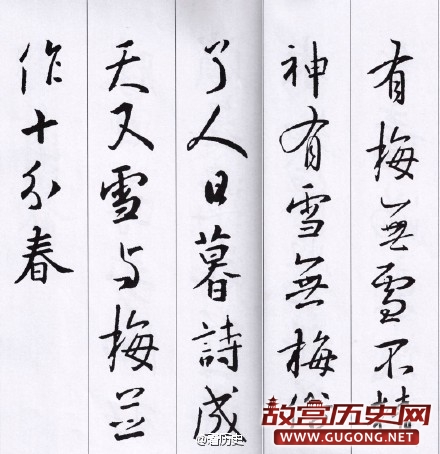 有梅無雪不精
神有雪無梅俗
了人日暮詩成
天又雪与梅並
作十分春
@看历史
故宫历史网
WWW.GUGONG.NET